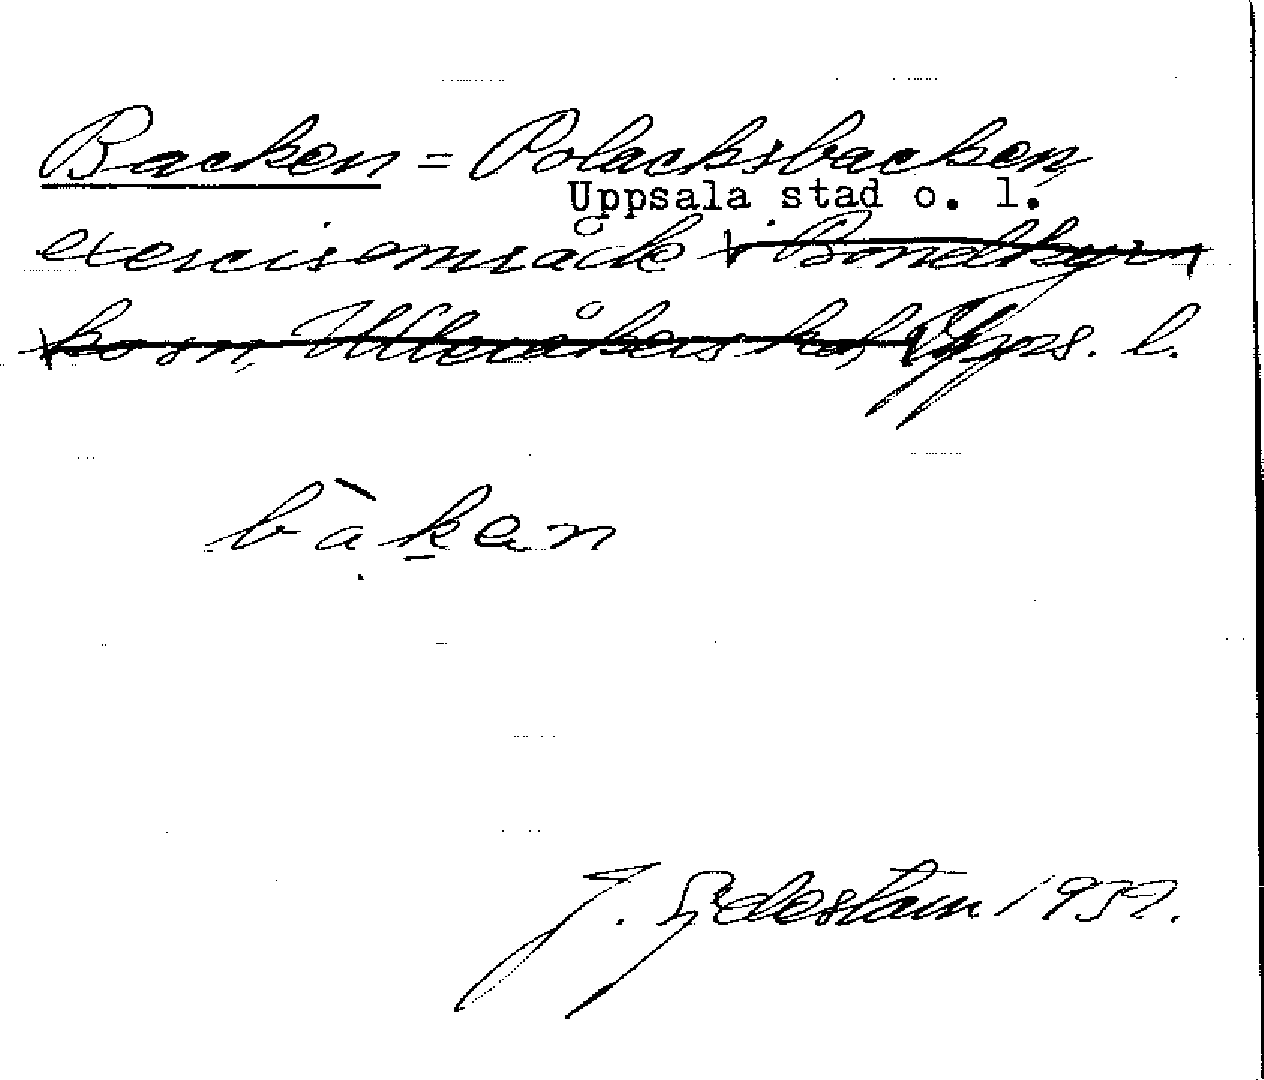 Backen = Polacksbacken
Uppsala stad o. l.
exercisområde Bondkyr-
korn, Ulleråkers hd, Upps. l.
bàkan
J. Sjdestam 1937.